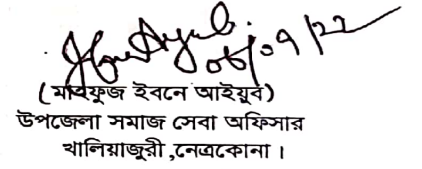 ০৬/০৭/২২
(মাহফুজ ইবনে আইয়ুব)
উপজেলা সমাজ সেবা অফিসার
খালিয়াজুরী ,নেত্রকোনা ।